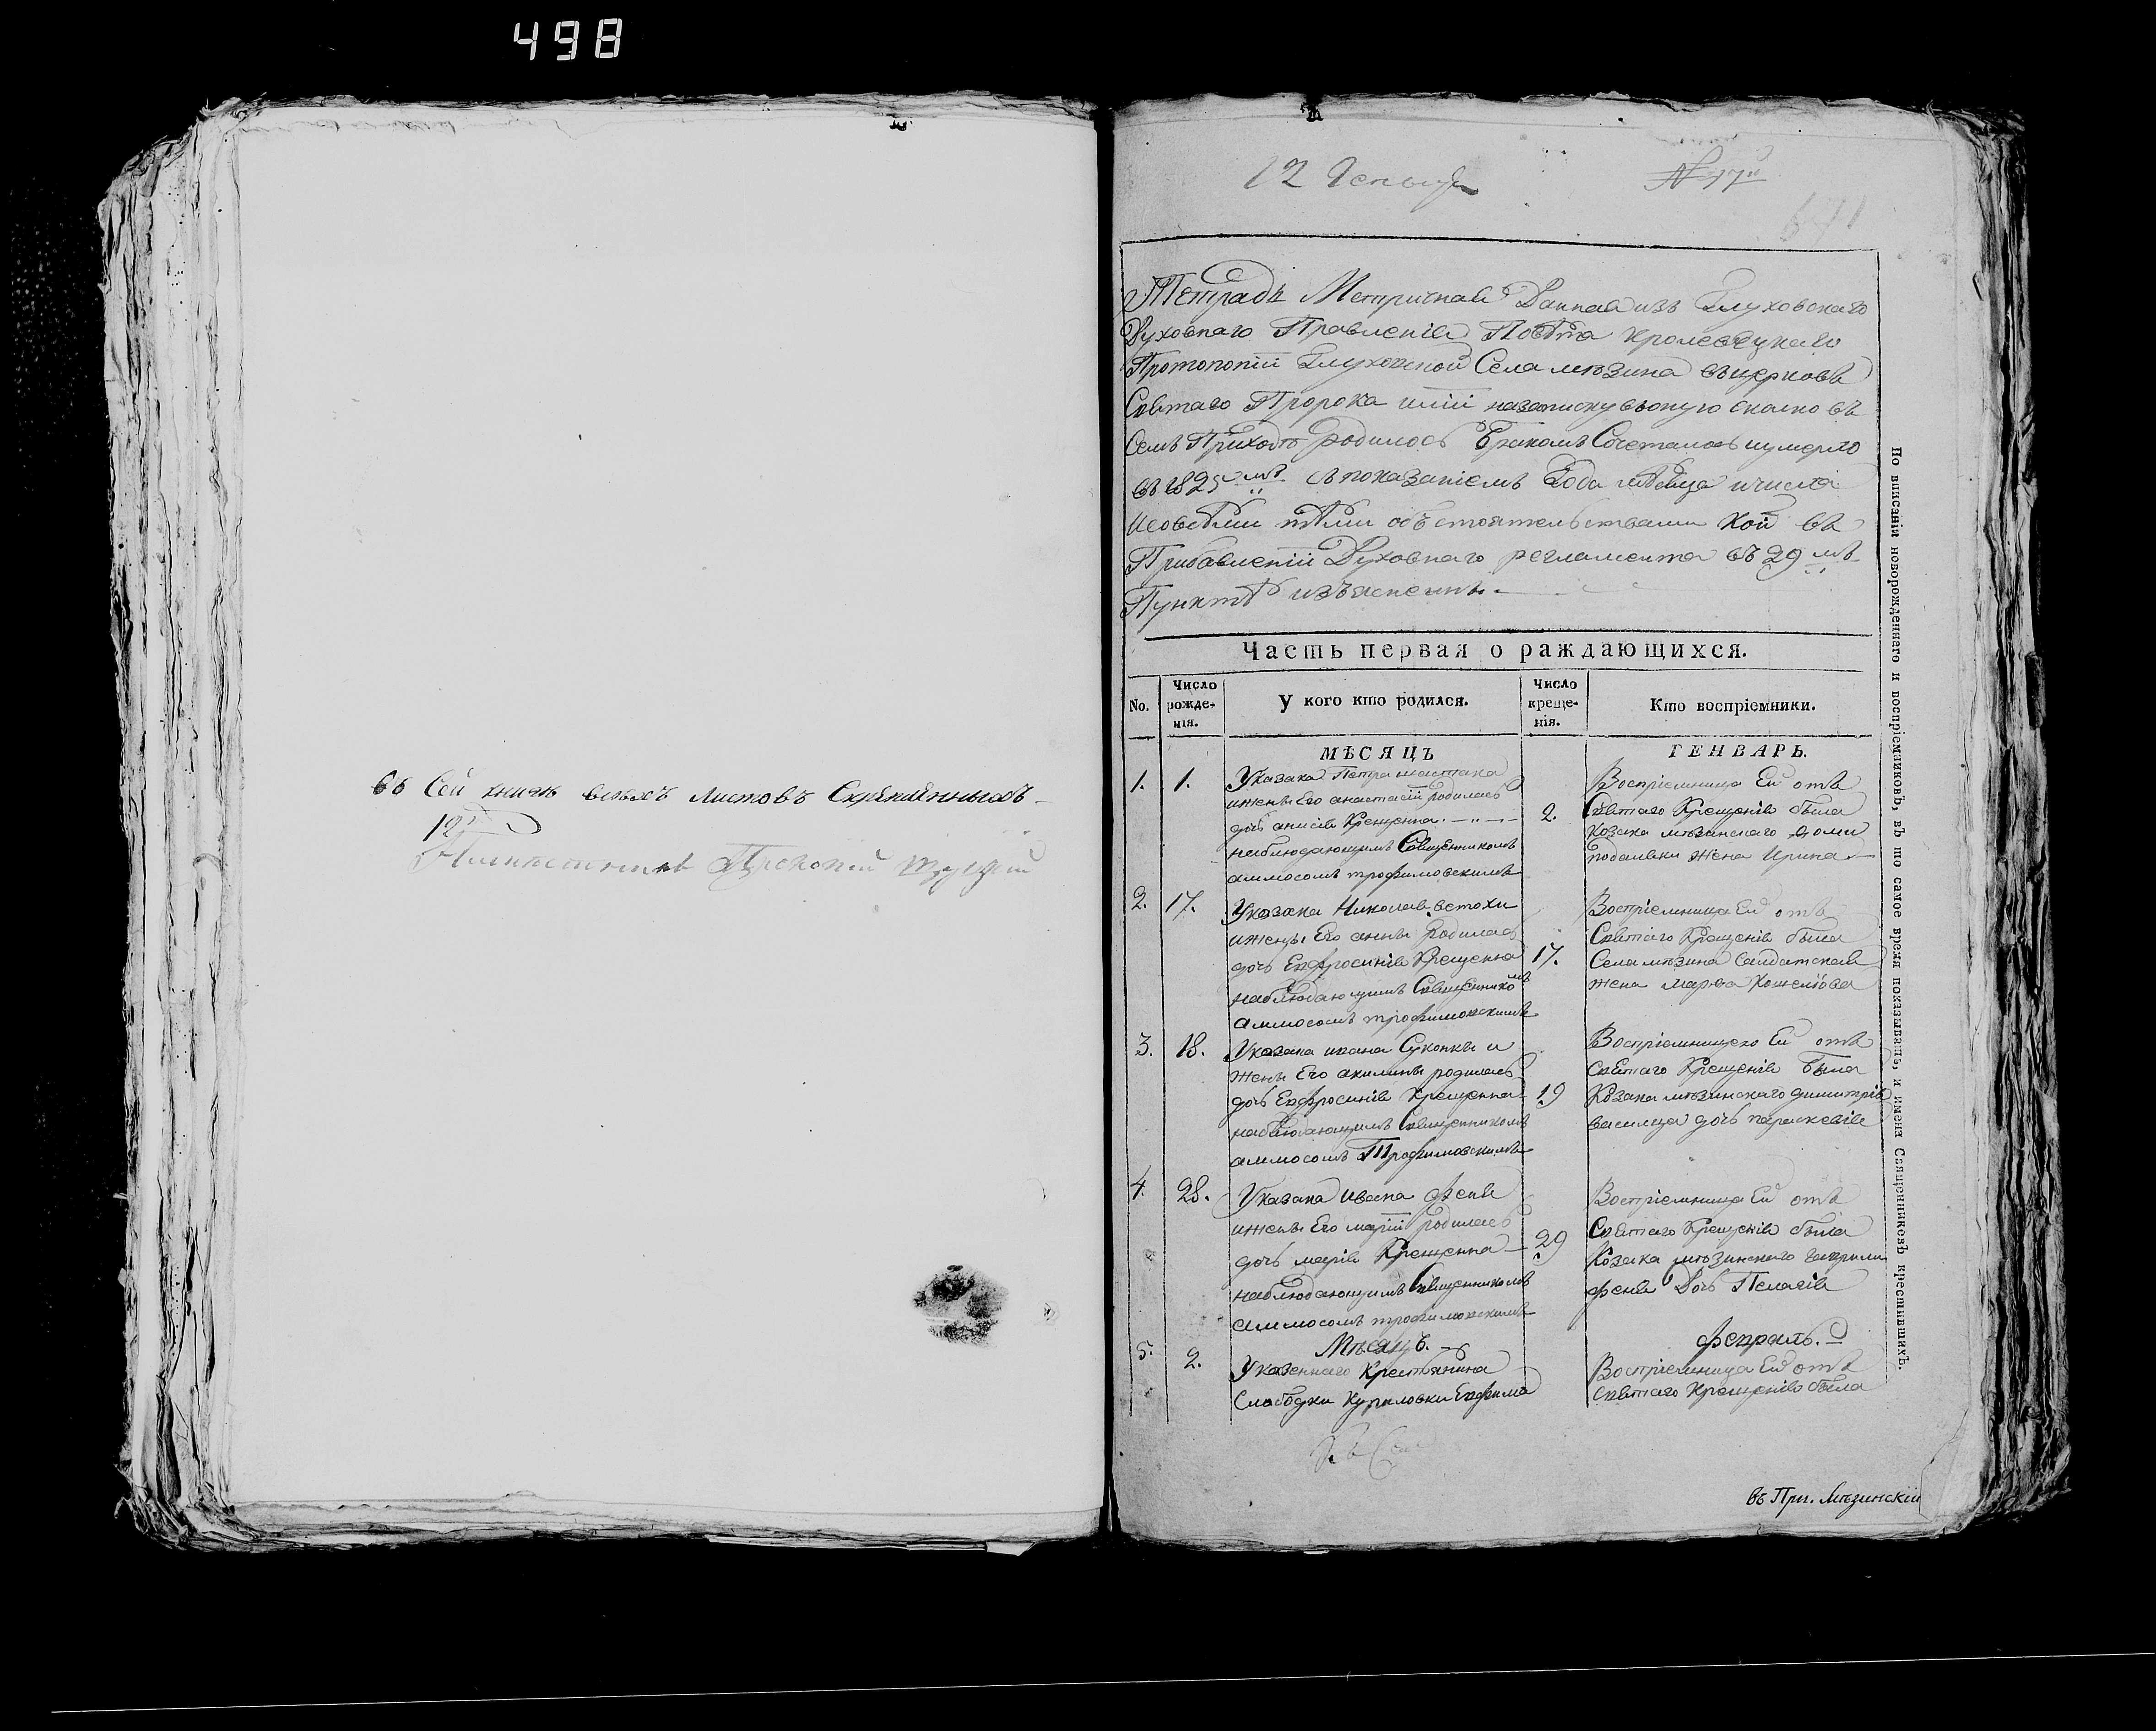 498
въ Сей книгѣ всѣхъ листовъ Скрѣпленныхъ
12
Прокопий
12
№ 17й
Тетрадь Метричная Данная изъ Глуховскаго
Духовнаго Правленія Повѣта Кролевецкаго
Протопопіи Глуховской Села мѣзина въ церковь
Святаго Пророка иліи на записку въ оную сколко въ
Семъ Приходѣ Родилось Бракомъ Сочеталось и умерло
въ 1825мъ съ показаніемъ Года мѣсяца и числа
и со всѣми тѣми обстоятельствами кои въ
Прибавленіи Духовнаго регламента въ 29мъ
Пунктѣ изъяснены.
Часть первая о раждающихся.
No.
Число рожде-нія.
У кого кто родился.
Число креще-нія.
Кто воспріемники.
МѢСЯЦЪ
ГЕНВАРЬ.
1. 1.
У казака Петра
и жены Его анастасіи Родилась
дочь анисія Крещенна.
наблюдающимъ Священникомъ
аммосомъ трофимовскимъ
2.
Воспріемница Ей отъ
Святаго Крещенія была
козака мѣзинскаго
жена Ирина
2. 17.
У казака Николая
и жены Его анны Родилась
дочь Евфросинія Крещенна
наблюдающимъ Священникомъ
аммосомъ трофимовскимъ
17.
Воспріемница Ей отъ
Святаго Крещенія была
Села мѣзина Салдатская
жена марѳа
3. 18.
У казака ивана Суконки и
жены Его акилины родилась
дочь Евфросинія Крещенна
наблюдающимъ Священникомъ
аммосомъ Трофимовскимъ
19
Воспріемницею Ей отъ
Святаго Крещенія Была
Козака мѣзинскаго димитрія
василца дочь параскевія
4. 28.
У казака ивана феня
и жены Его маріи Родилась
дочь марія Крещенна
наблюдающимъ Священникомъ
аммосомъ трофимовскимъ
29
Воспріемница Ей отъ
Святаго Крещенія была
Козака мѣзинскаго гаврилы
феня Дочь Пелагія
Мѣсяцъ.
февраль.
5. 2.
У казеннаго Крестянина
Слободки Куриловки Евфима
Воспріемница Ей отъ
Святаго Крещенія была
въ При. Мѣзинскій
По вписаніи новорожденнаго и воспріемниковъ, въ то самое время показывать, и имена Священниковъ крестившихъ.